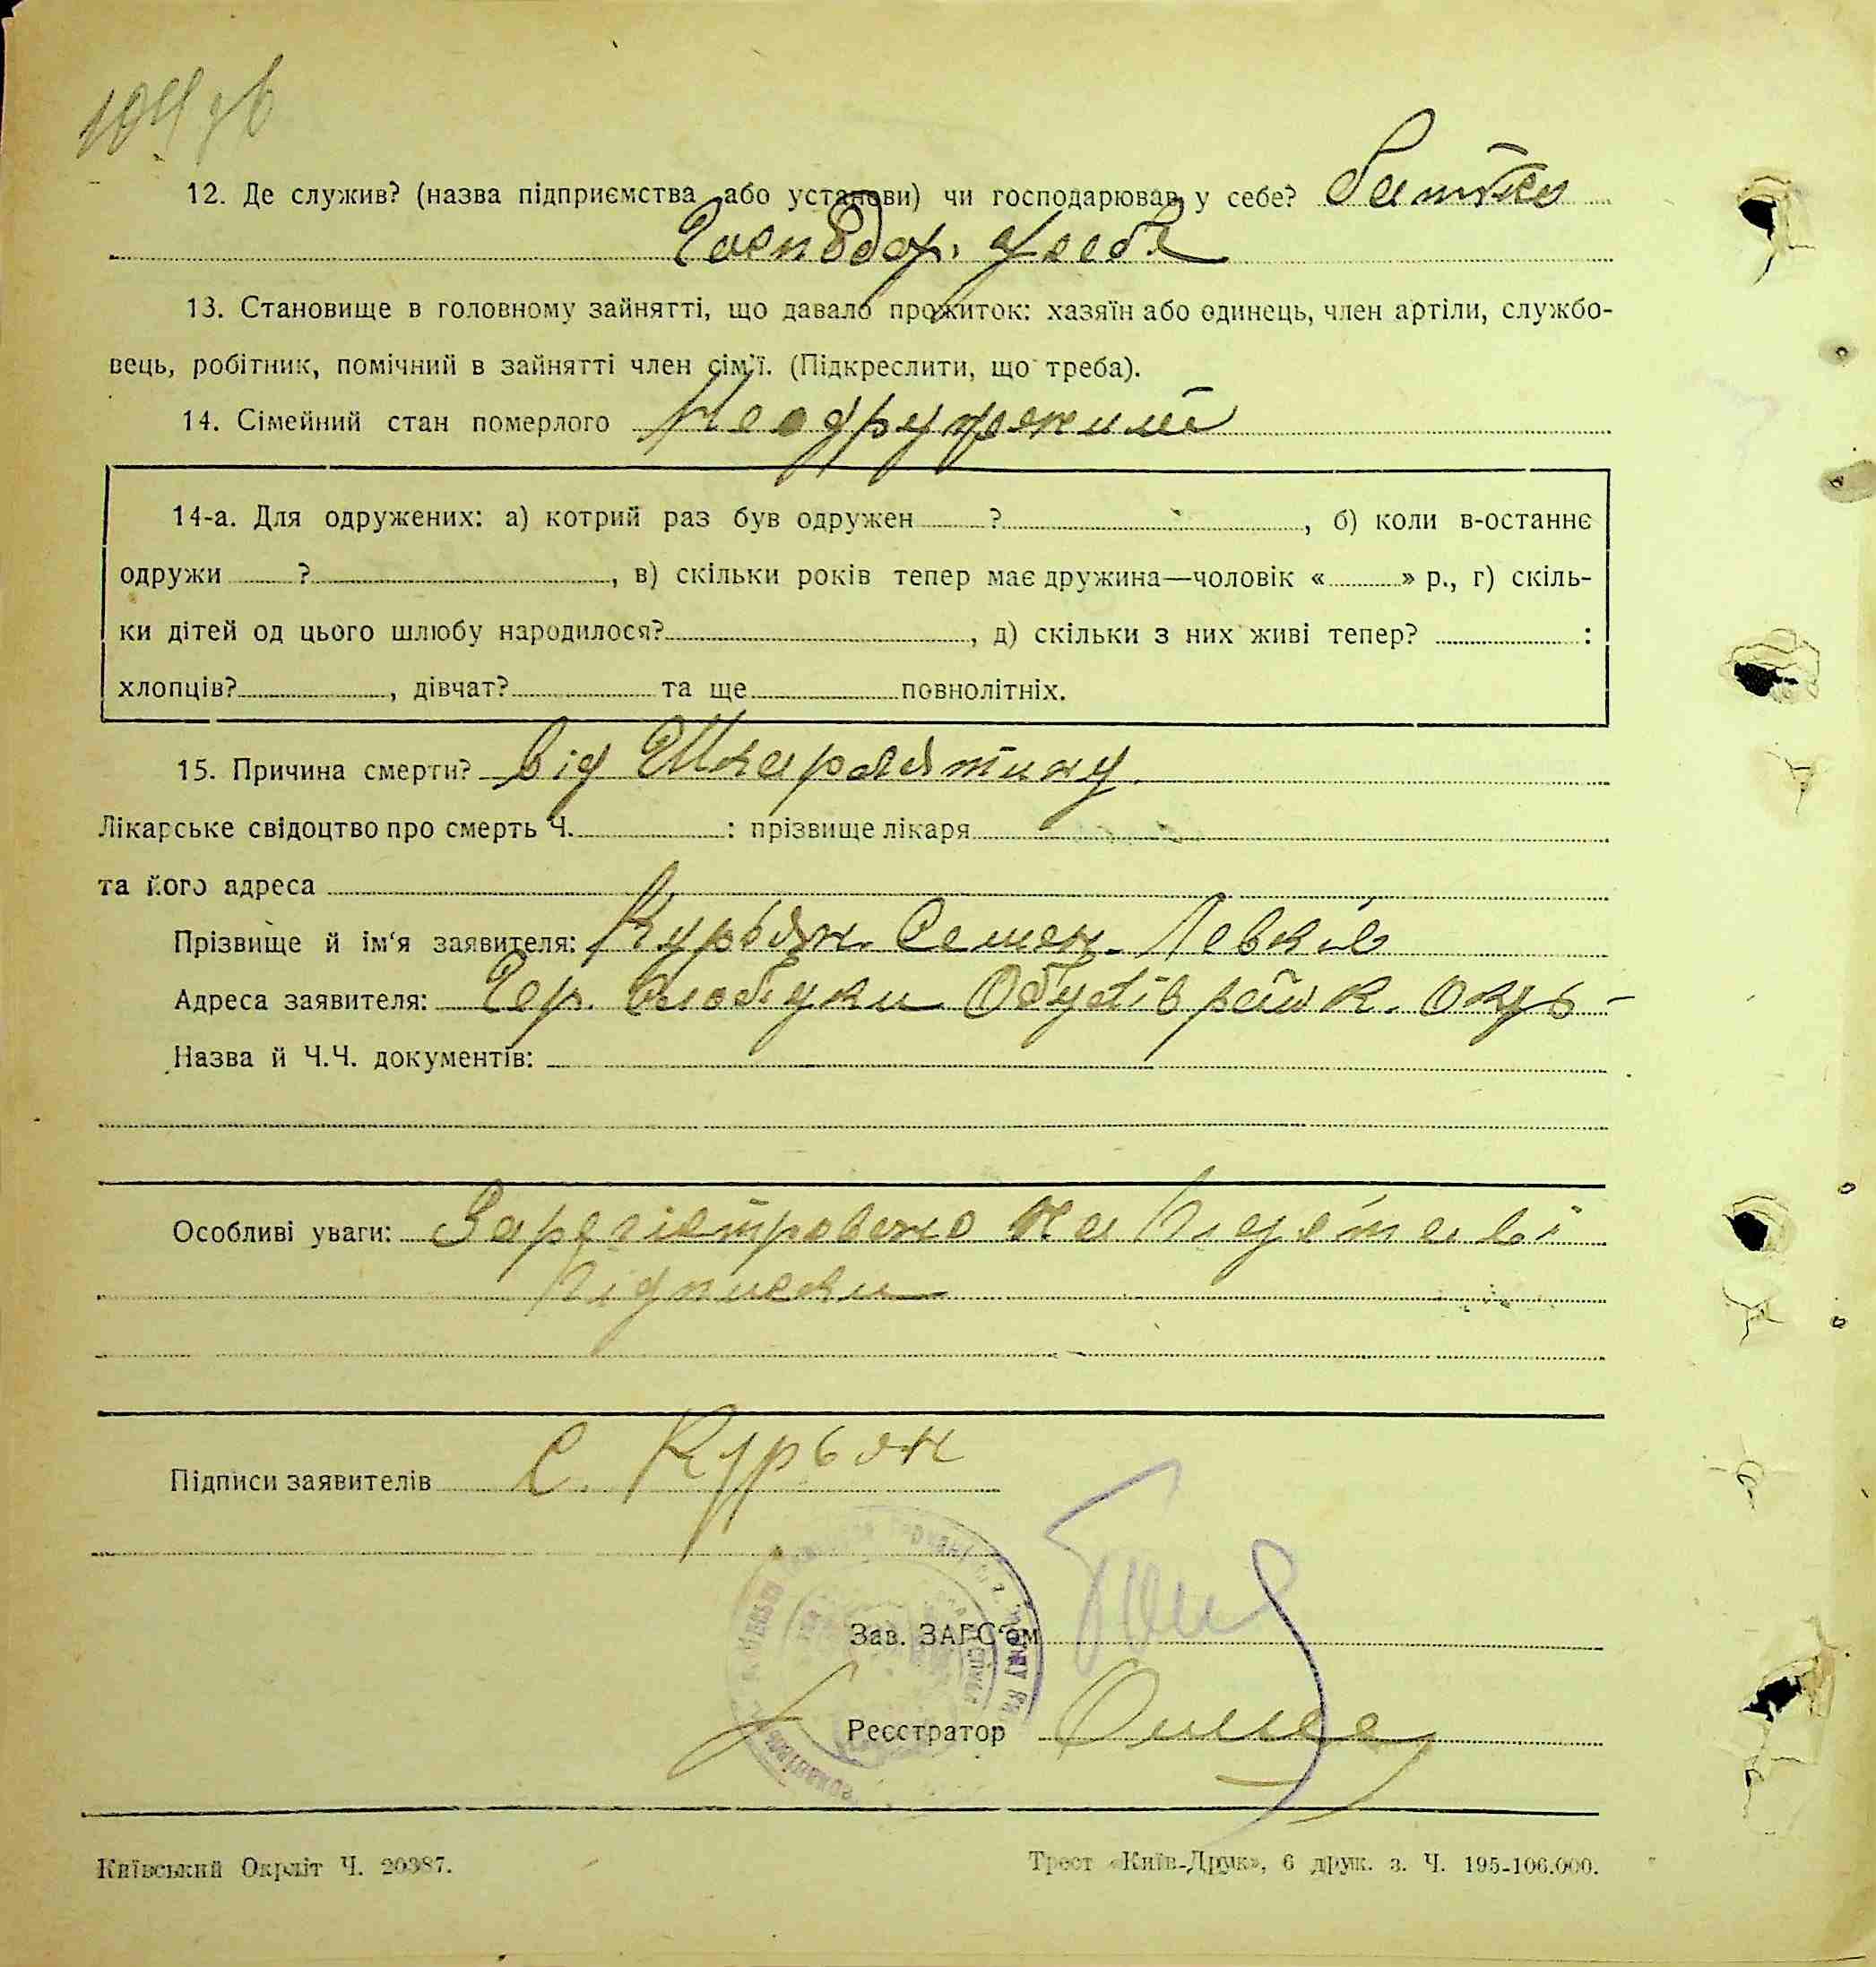 12. Де служив? (назва підприємства або установи) чи господарював у себе? Батько
Господар. у себе
13. Становище в головному зайнятті, що давало прожиток: хазяїн або одинець, член артіли, службо-
вець, робітник, помічний в зайнятті член сім'ї. (Підкреслити, що треба).
14. Сімейний стан померлого Неодружений
14-а. Для одружених: а) котрий раз був одружен ? , б) коли в-останнє
одружи ? , в) скільки років тепер має дружина—чоловік « » р., г) скіль-
ки дітей од цього шлюбу народилося? , д) скільки з них живі тепер? :
хлопців? , дівчат? та ще повнолітніх.
15. Причина смерти? від Шкарлятини
Лікарське свідоцтво про смерть Ч. : прізвище лікаря
та його адреса
Прізвище й ім'я заявителя: Курьян Семен Левків
Адреса заявителя: Гер. Слобідки Обухів район К. Окр
Назва й Ч.Ч. документів:
Особливі уваги: Зарегістровано на Підставі
Підписки
Підписи заявителів С. Курьян
Зав. ЗАГС'ом
Реєстратор
Київський Окрліт Ч. 20387.
Трест «Київ-Друк», 6 друк. з. Ч. 195-106.000.